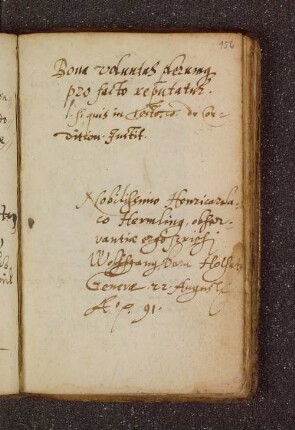 156
Bona voluntas plerumq
pro facto reputatur.
l. si quis in de Con-
dition. Instit.
Nobilissimo Henrico
co Hermling obser-
vantiæ ergo scripsi
Wolffgang Holsatus
Genevæ 22 Augusti
Aº. 91.